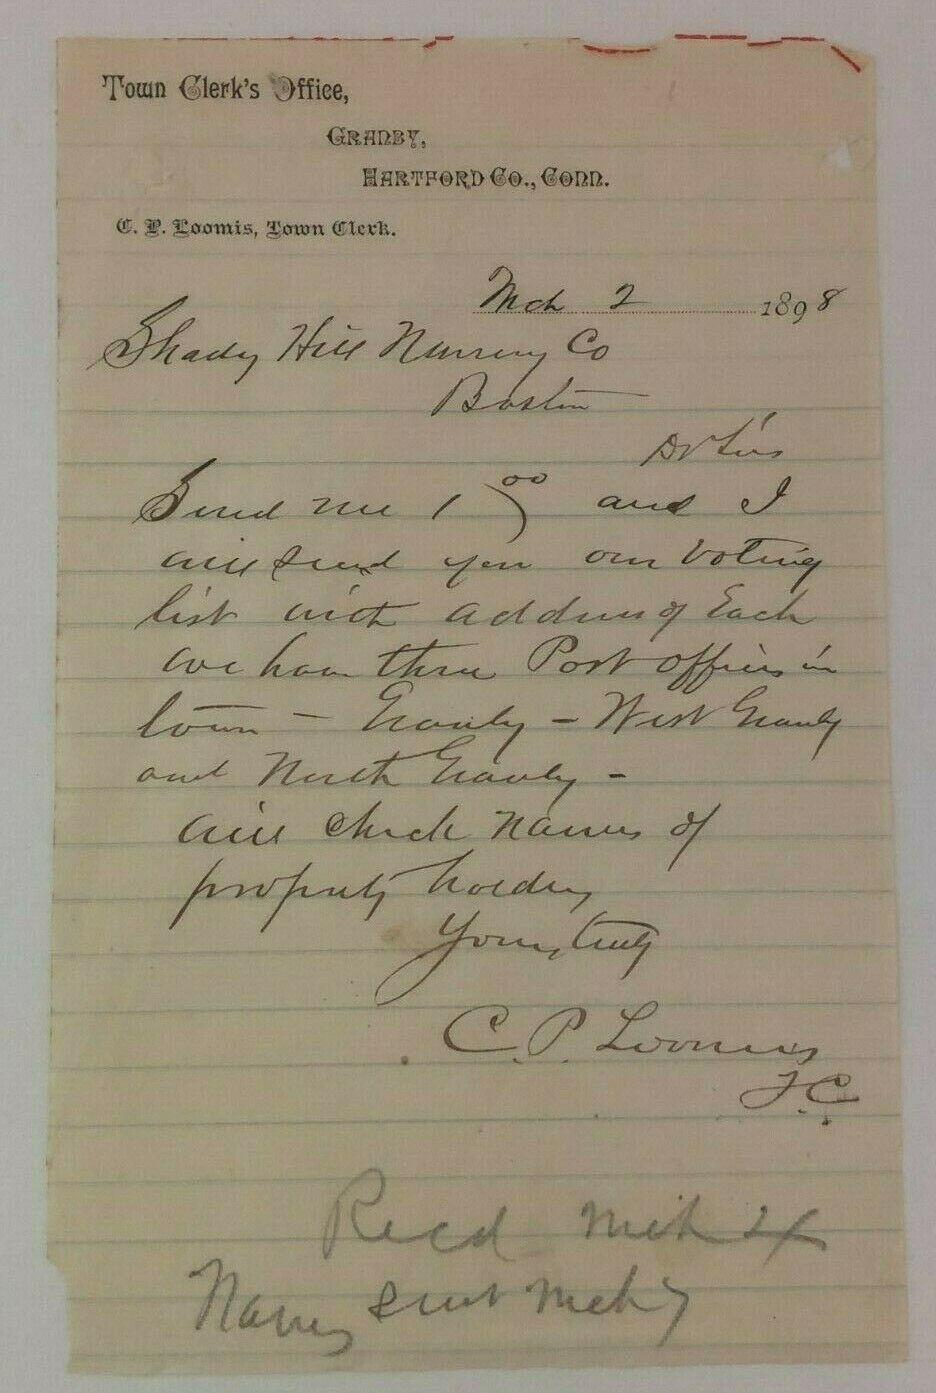 Town Clerk's Office,
GRANBY,
HARTFORD CO., CONN.
C. P. Loomis, Town Clerk.
Mch 2 1898
Shady Hill Nursery Co
Boston
Dr Sirs
Send me 1 00 and I
will send you our voting
list with address of Each
we have three Post offices in
town - Granby - West Granby
and North Granby -
will check names of
property holders
Yours truly
C. P. Loomis
T.C.
Recd Mch 4
Names sent Mch 7